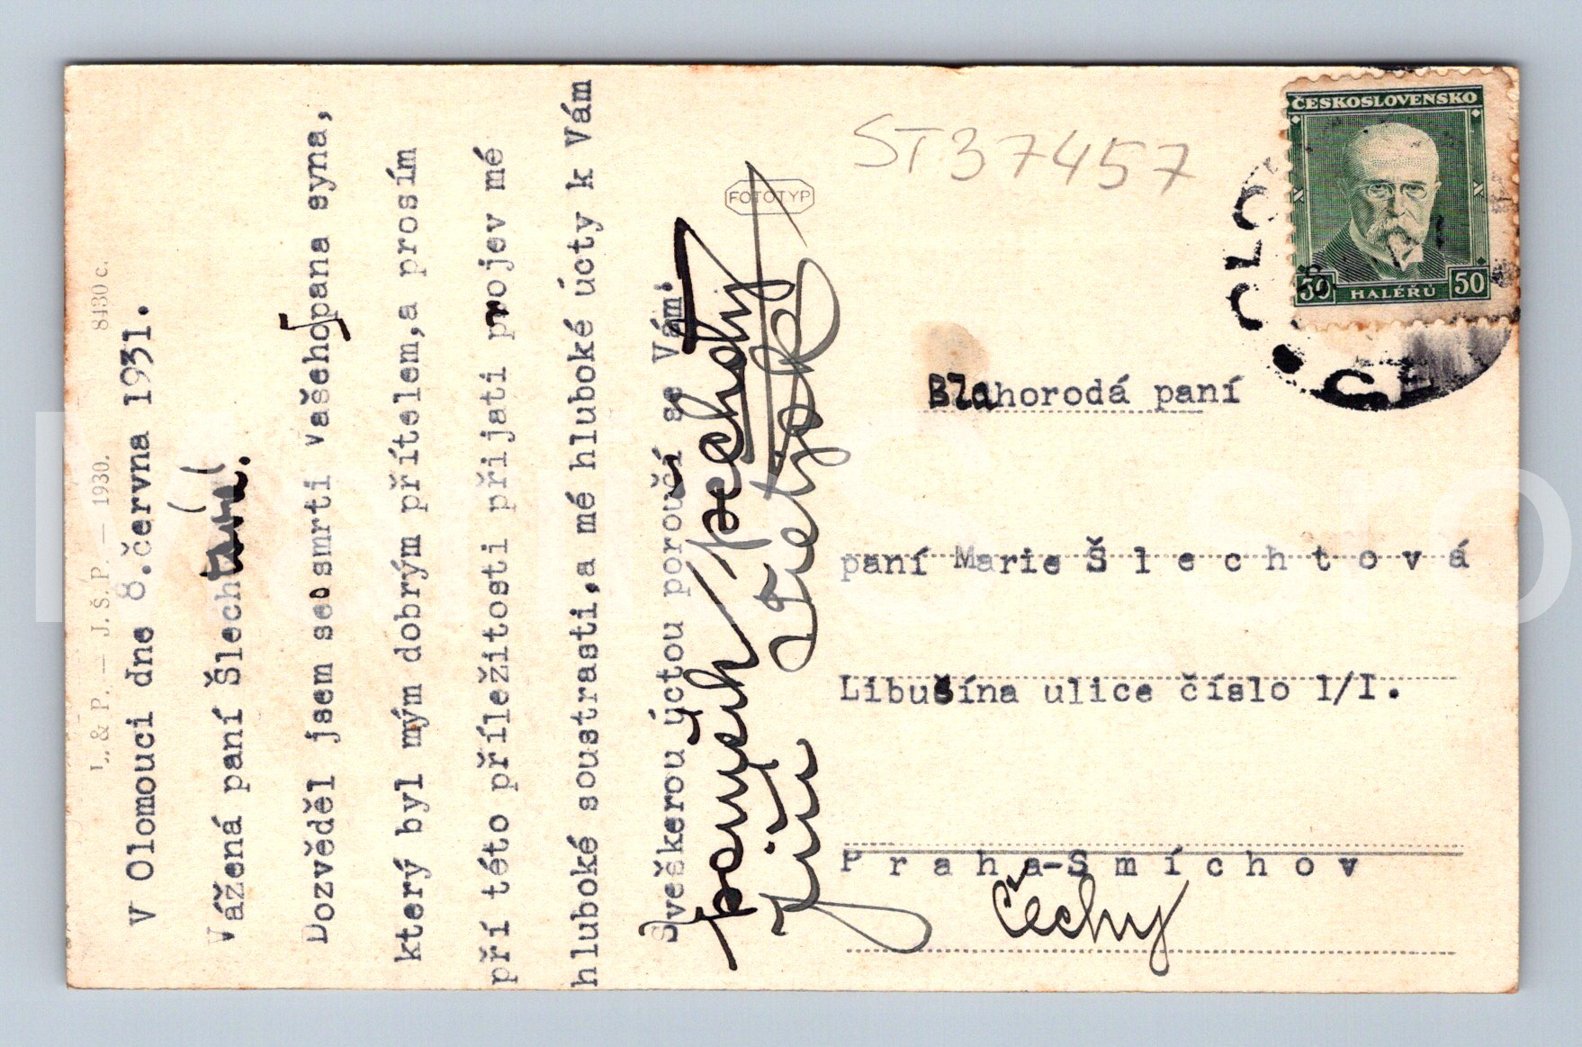 L. & P. — J. Š. P. — 1930. 8430 c.
V Olomouci dne 8.června 1931.
Vážená paní Šlechtová!
Dozvěděl jsem se o smrti Vašeho pana syna,
který byl mým dobrým přítelem,a prosím
při této příležitosti přijati projev mé
hluboké soustrasti,a mé hluboké úcty k Vám
S veškerou úctou poroučí se Vám:
Jiří
FOTOTYP
ST37457
ČESKOSLOVENSKO
50 HALÉŘŮ 50
OLO
Blahorodá paní
paní Marie Šlechtová
Libušina ulice číslo 1/I.
Praha-Smíchov
Čechy